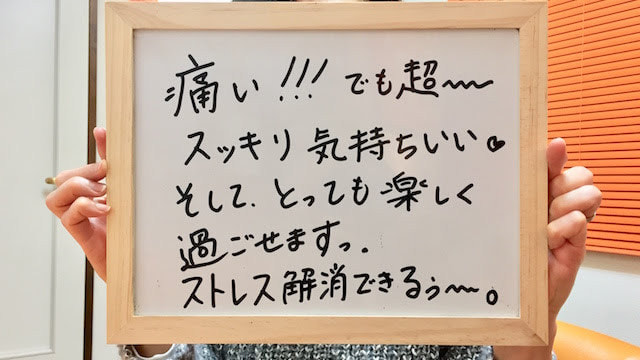 痛い!!! でも超〜
スッキリ気持ちいい♥
そして、とっても楽しく
過ごせますっ。
ストレス解消できるぅ〜。